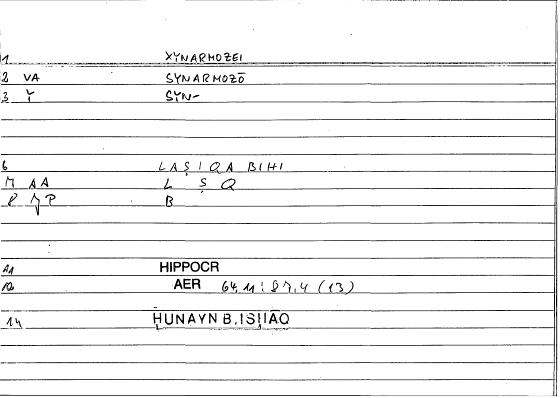 1 XYNARMOZEI
2 VA SYNARMOZŌ
3 Y SYN-
6 LAṢIQA BIHI
7 AA L Ṣ Q
8 JP B
11 HIPPOCR
12 AER 64,11 : 87,4 (13)
14 ḤUNAYN B.ISḤĀQ